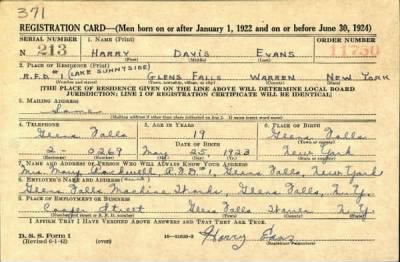 371
REGISTRATION CARD—(Men born on or after January 1, 1922 and on or before June 30, 1924)
SERIAL NUMBER 1. NAME (Print) ORDER NUMBER
N 213 HARRY DAVIS EVANS 11750
(First) (Middle) (Last)
2. PLACE OF RESIDENCE (Print)
R.F.D. #1 (LAKE SUNNYSIDE) GLENS FALLS WARREN NEW YORK
(Number and street) (Town, township, village, or city) (County) (State)
[THE PLACE OF RESIDENCE GIVEN ON THE LINE ABOVE WILL DETERMINE LOCAL BOARD
JURISDICTION; LINE 2 OF REGISTRATION CERTIFICATE WILL BE IDENTICAL]
3. MAILING ADDRESS
Same
4. TELEPHONE 5. AGE IN YEARS 6. PLACE OF BIRTH
Glens Falls 19 Glens Falls
DATE OF BIRTH
2-0269 May 25 1923 New York
7. NAME AND ADDRESS OF PERSON WHO WILL ALWAYS KNOW YOUR ADDRESS
Mrs. Mary R.F.D. #1, Glens Falls, New York
8. EMPLOYER'S NAME AND ADDRESS
Glens Falls Machine Works, Glens Falls, N.Y.
9. PLACE OF EMPLOYMENT OR BUSINESS
Cooper Street Glens Falls Warren N.Y.
(Number and street or R. F. D. number) (Town) (County) (State)
I AFFIRM THAT I HAVE VERIFIED ABOVE ANSWERS AND THAT THEY ARE TRUE.
D. S. S. Form 1
(Revised 6-1-42) (over) Harry Evans
(Registrant's signature)